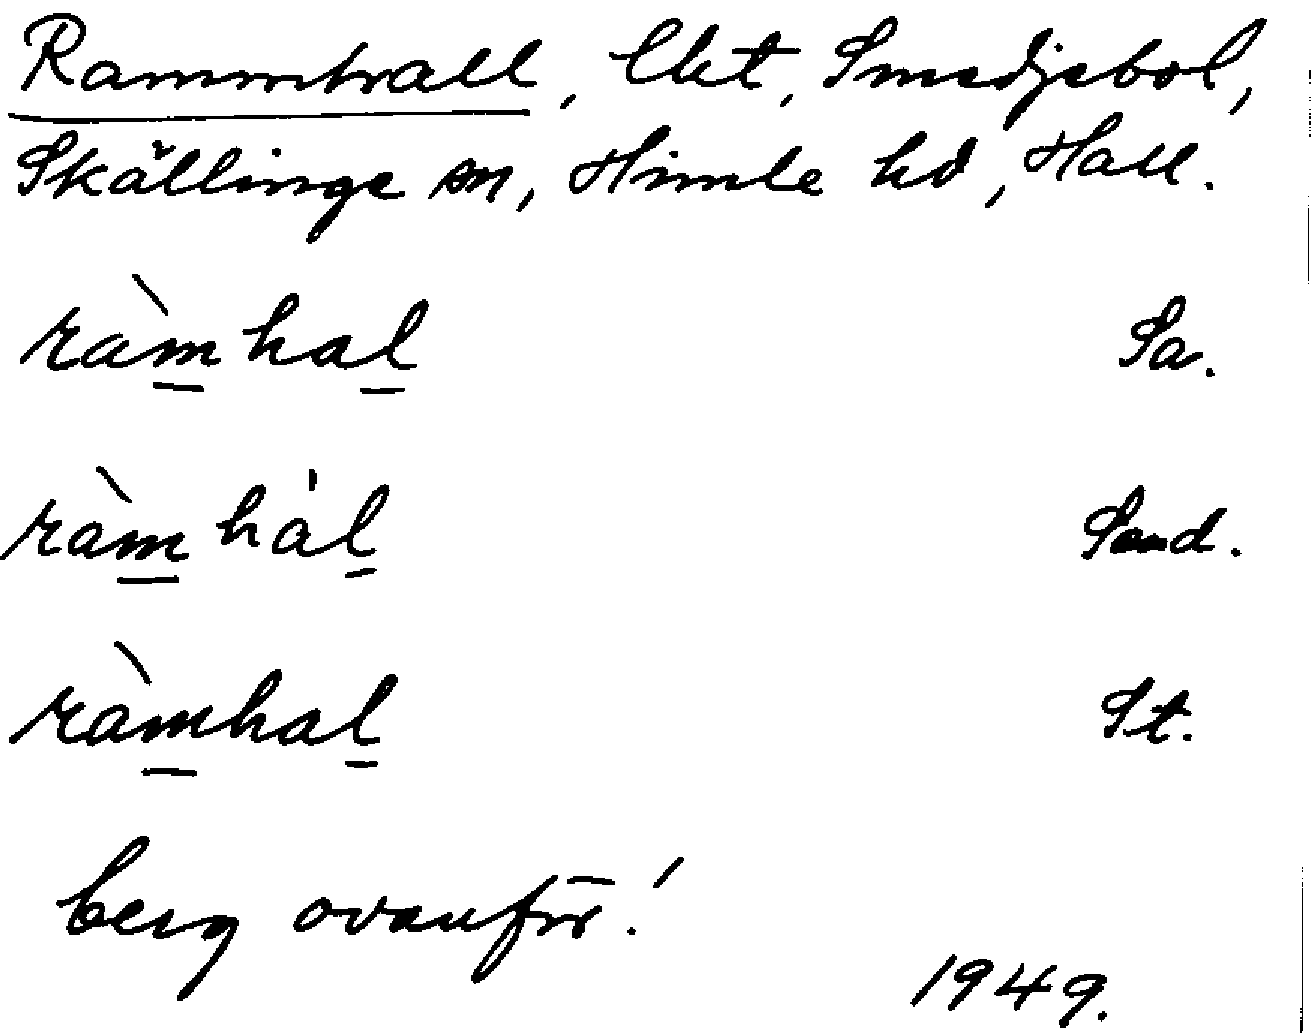 Rammhall, lht, Smedjebol,
Skällinge sn, Himle hd, Hall.
ràm̲hal̲ Sa.
ràm̲hál̲ Sand.
ràm̲hal̲ St.
berg ovanför!
1949.